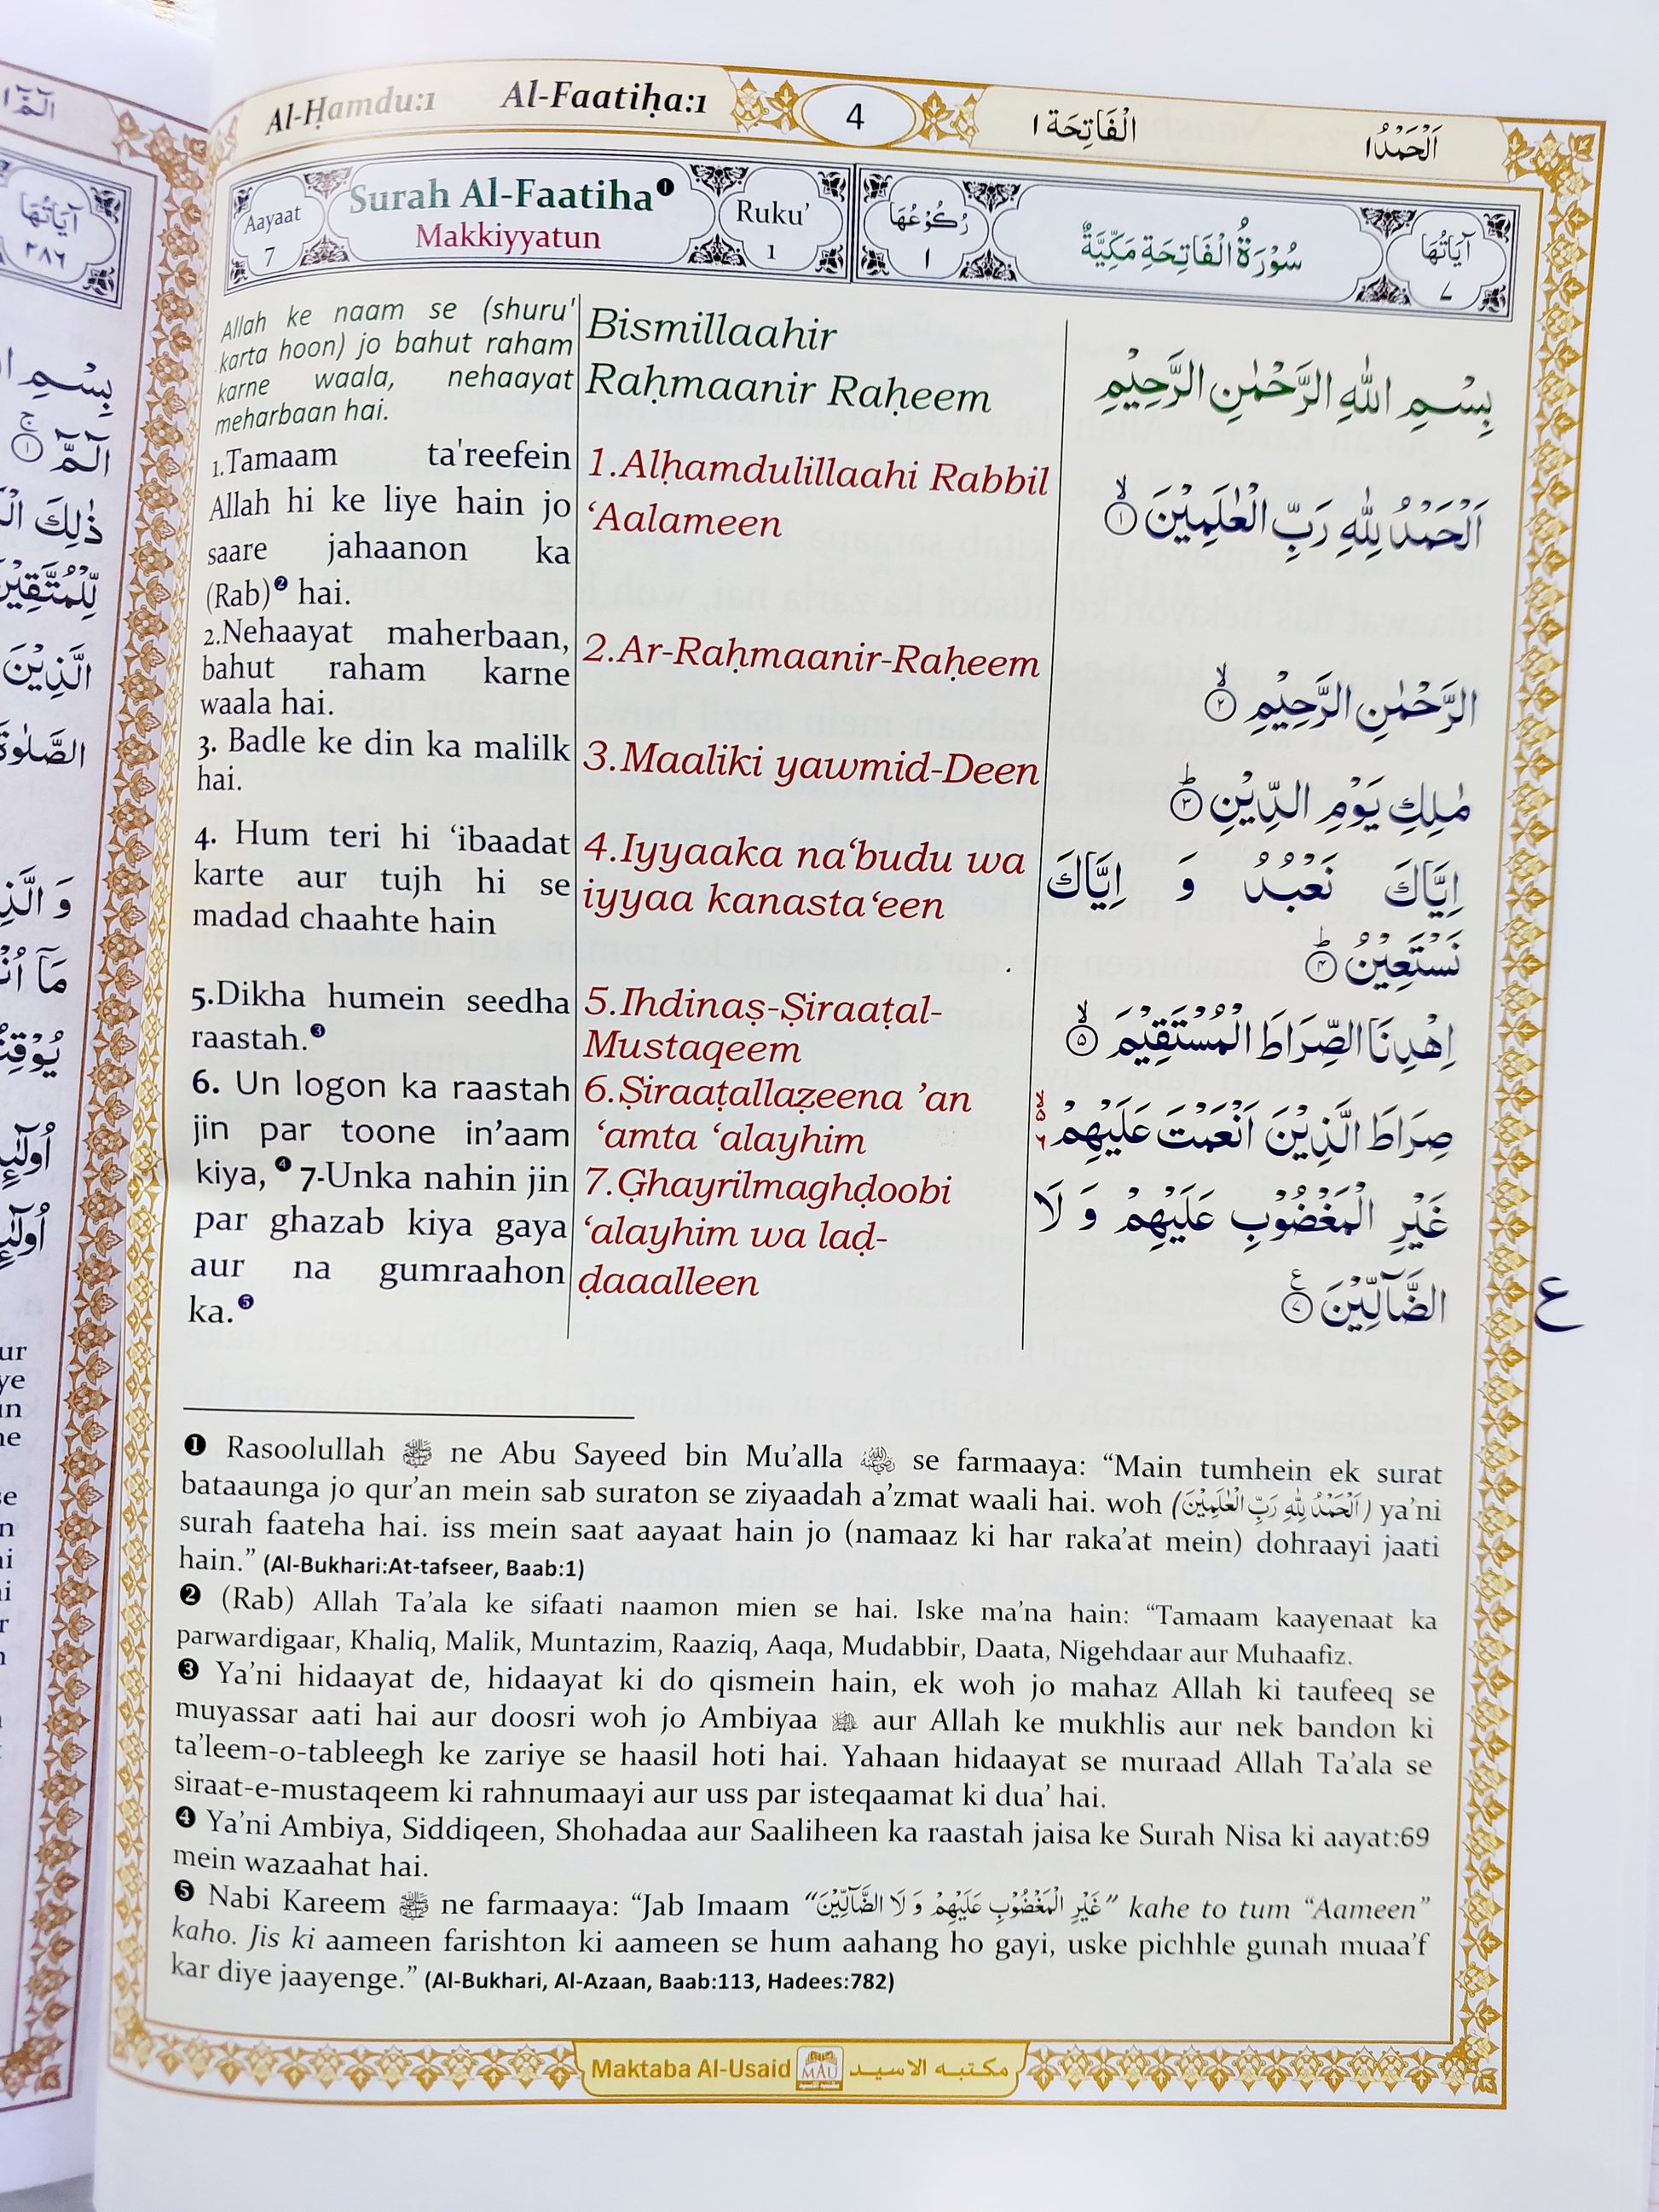 Al-Ḥamdu:1 Al-Faatiḥa:1 4 الْفَاتِحَة ١ اَلْحَمْدُ ١
Aayaat
7
Surah Al-Faatiha❶
Makkiyyatun
Ruku’
1
رُكُوْعُهَا
١
سُوْرَةُ الْفَاتِحَةِ مَكِّيَّةٌ
آيَاتُهَا
٧
Allah ke naam se (shuru'
karta hoon) jo bahut raham
karne waala, nehaayat
meharbaan hai.
1.Tamaam ta'reefein
Allah hi ke liye hain jo
saare jahaanon ka
(Rab)❷ hai.
2.Nehaayat maherbaan,
bahut raham karne
waala hai.
3. Badle ke din ka malilk
hai.
4. Hum teri hi ‘ibaadat
karte aur tujh hi se
madad chaahte hain
5.Dikha humein seedha
raastah.❸
6. Un logon ka raastah
jin par toone in’aam
kiya, ❹ 7-Unka nahin jin
par ghazab kiya gaya
aur na gumraahon
ka.❺
Bismillaahir
Raḥmaanir Raḥeem
1.Alḥamdulillaahi Rabbil
‘Aalameen
2.Ar-Raḥmaanir-Raḥeem
3.Maaliki yawmid-Deen
4.Iyyaaka na‘budu wa
iyyaa kanasta‘een
5.Ihdinaṣ-Ṣiraaṭal-
Mustaqeem
6.Ṣiraaṭallaẓeena ’an
‘amta ‘alayhim
7.Ġhayrilmaghḍoobi
‘alayhim wa laḍ-
ḍaaalleen
بِسْمِ اللّٰهِ الرَّحْمٰنِ الرَّحِيْمِ
اَلْحَمْدُ لِلّٰهِ رَبِّ الْعٰلَمِيْنَ ۙ﴿١﴾
الرَّحْمٰنِ الرَّحِيْمِ ۙ﴿٢﴾
مٰلِكِ يَوْمِ الدِّيْنِ ؕ﴿٣﴾
اِيَّاكَ نَعْبُدُ وَ اِيَّاكَ
نَسْتَعِيْنُ ؕ﴿۴﴾
اِهْدِنَا الصِّرَاطَ الْمُسْتَقِيْمَ ۙ﴿۵﴾
صِرَاطَ الَّذِيْنَ اَنْعَمْتَ عَلَيْهِمْ ۙ۵ ٦
غَيْرِ الْمَغْضُوْبِ عَلَيْهِمْ وَ لَا
الضَّآلِّيْنَ ﴿٧﴾ ع
ع
❶ Rasoolullah ﷺ ne Abu Sayeed bin Mu’alla رضي الله عنه se farmaaya: “Main tumhein ek surat
bataaunga jo qur’an mein sab suraton se ziyaadah a’zmat waali hai. woh (اَلْحَمْدُ لِلّٰهِ رَبِّ الْعٰلَمِيْنَ) ya’ni
surah faateha hai. iss mein saat aayaat hain jo (namaaz ki har raka’at mein) dohraayi jaati
hain.” (Al-Bukhari:At-tafseer, Baab:1)
❷ (Rab) Allah Ta’ala ke sifaati naamon mien se hai. Iske ma’na hain: “Tamaam kaayenaat ka
parwardigaar, Khaliq, Malik, Muntazim, Raaziq, Aaqa, Mudabbir, Daata, Nigehdaar aur Muhaafiz.
❸ Ya’ni hidaayat de, hidaayat ki do qismein hain, ek woh jo mahaz Allah ki taufeeq se
muyassar aati hai aur doosri woh jo Ambiyaa aur Allah ke mukhlis aur nek bandon ki
ta’leem-o-tableegh ke zariye se haasil hoti hai. Yahaan hidaayat se muraad Allah Ta’ala se
siraat-e-mustaqeem ki rahnumaayi aur uss par isteqaamat ki dua’ hai.
❹ Ya’ni Ambiya, Siddiqeen, Shohadaa aur Saaliheen ka raastah jaisa ke Surah Nisa ki aayat:69
mein wazaahat hai.
❺ Nabi Kareem ﷺ ne farmaaya: “Jab Imaam “غَيْرِ الْمَغْضُوْبِ عَلَيْهِمْ وَ لَا الضَّآلِّيْنَ” kahe to tum “Aameen”
kaho. Jis ki aameen farishton ki aameen se hum aahang ho gayi, uske pichhle gunah muaa’f
kar diye jaayenge.” (Al-Bukhari, Al-Azaan, Baab:113, Hadees:782)
Maktaba Al-Usaid MAU مكتبه الاسيد